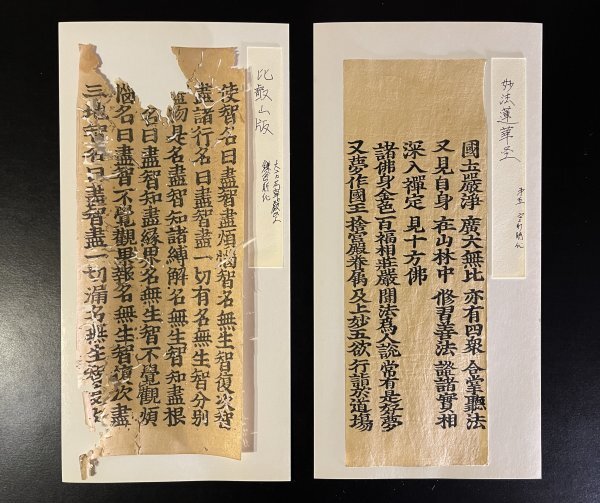 比叡山版
鎌倉時代
使智名曰盡智盡煩惱智名無生智復次
盡諸行名曰盡智盡一切有名無生智分別
是名盡智知諸縛解名無生智知盡根
名曰盡智知盡緣界名無生智不覺觀煩
惱名曰盡智不覺觀果報名無生智復次盡
三地 名曰盡智盡一切漏名無生智
妙法蓮華経
國土嚴淨 廣大無比 亦有四衆 合掌聽法
又見自身 在山林中 修習善法 證諸實相
深入禪定 見十方佛
諸佛身金色 百福相莊嚴 聞法為人說 常有是好夢
又夢作國王 捨宮殿眷属 及上妙五欲 行詣於道場